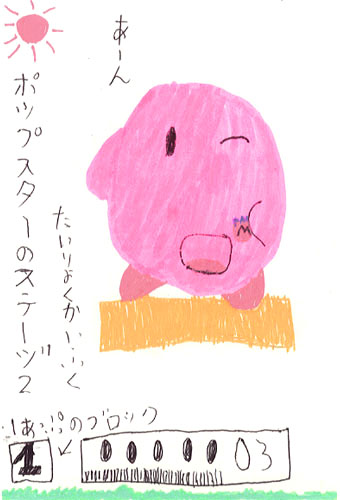 あーん
ポップスターのステージ2
たいりょくかいふく
1あっぷのブロック
1
03
M